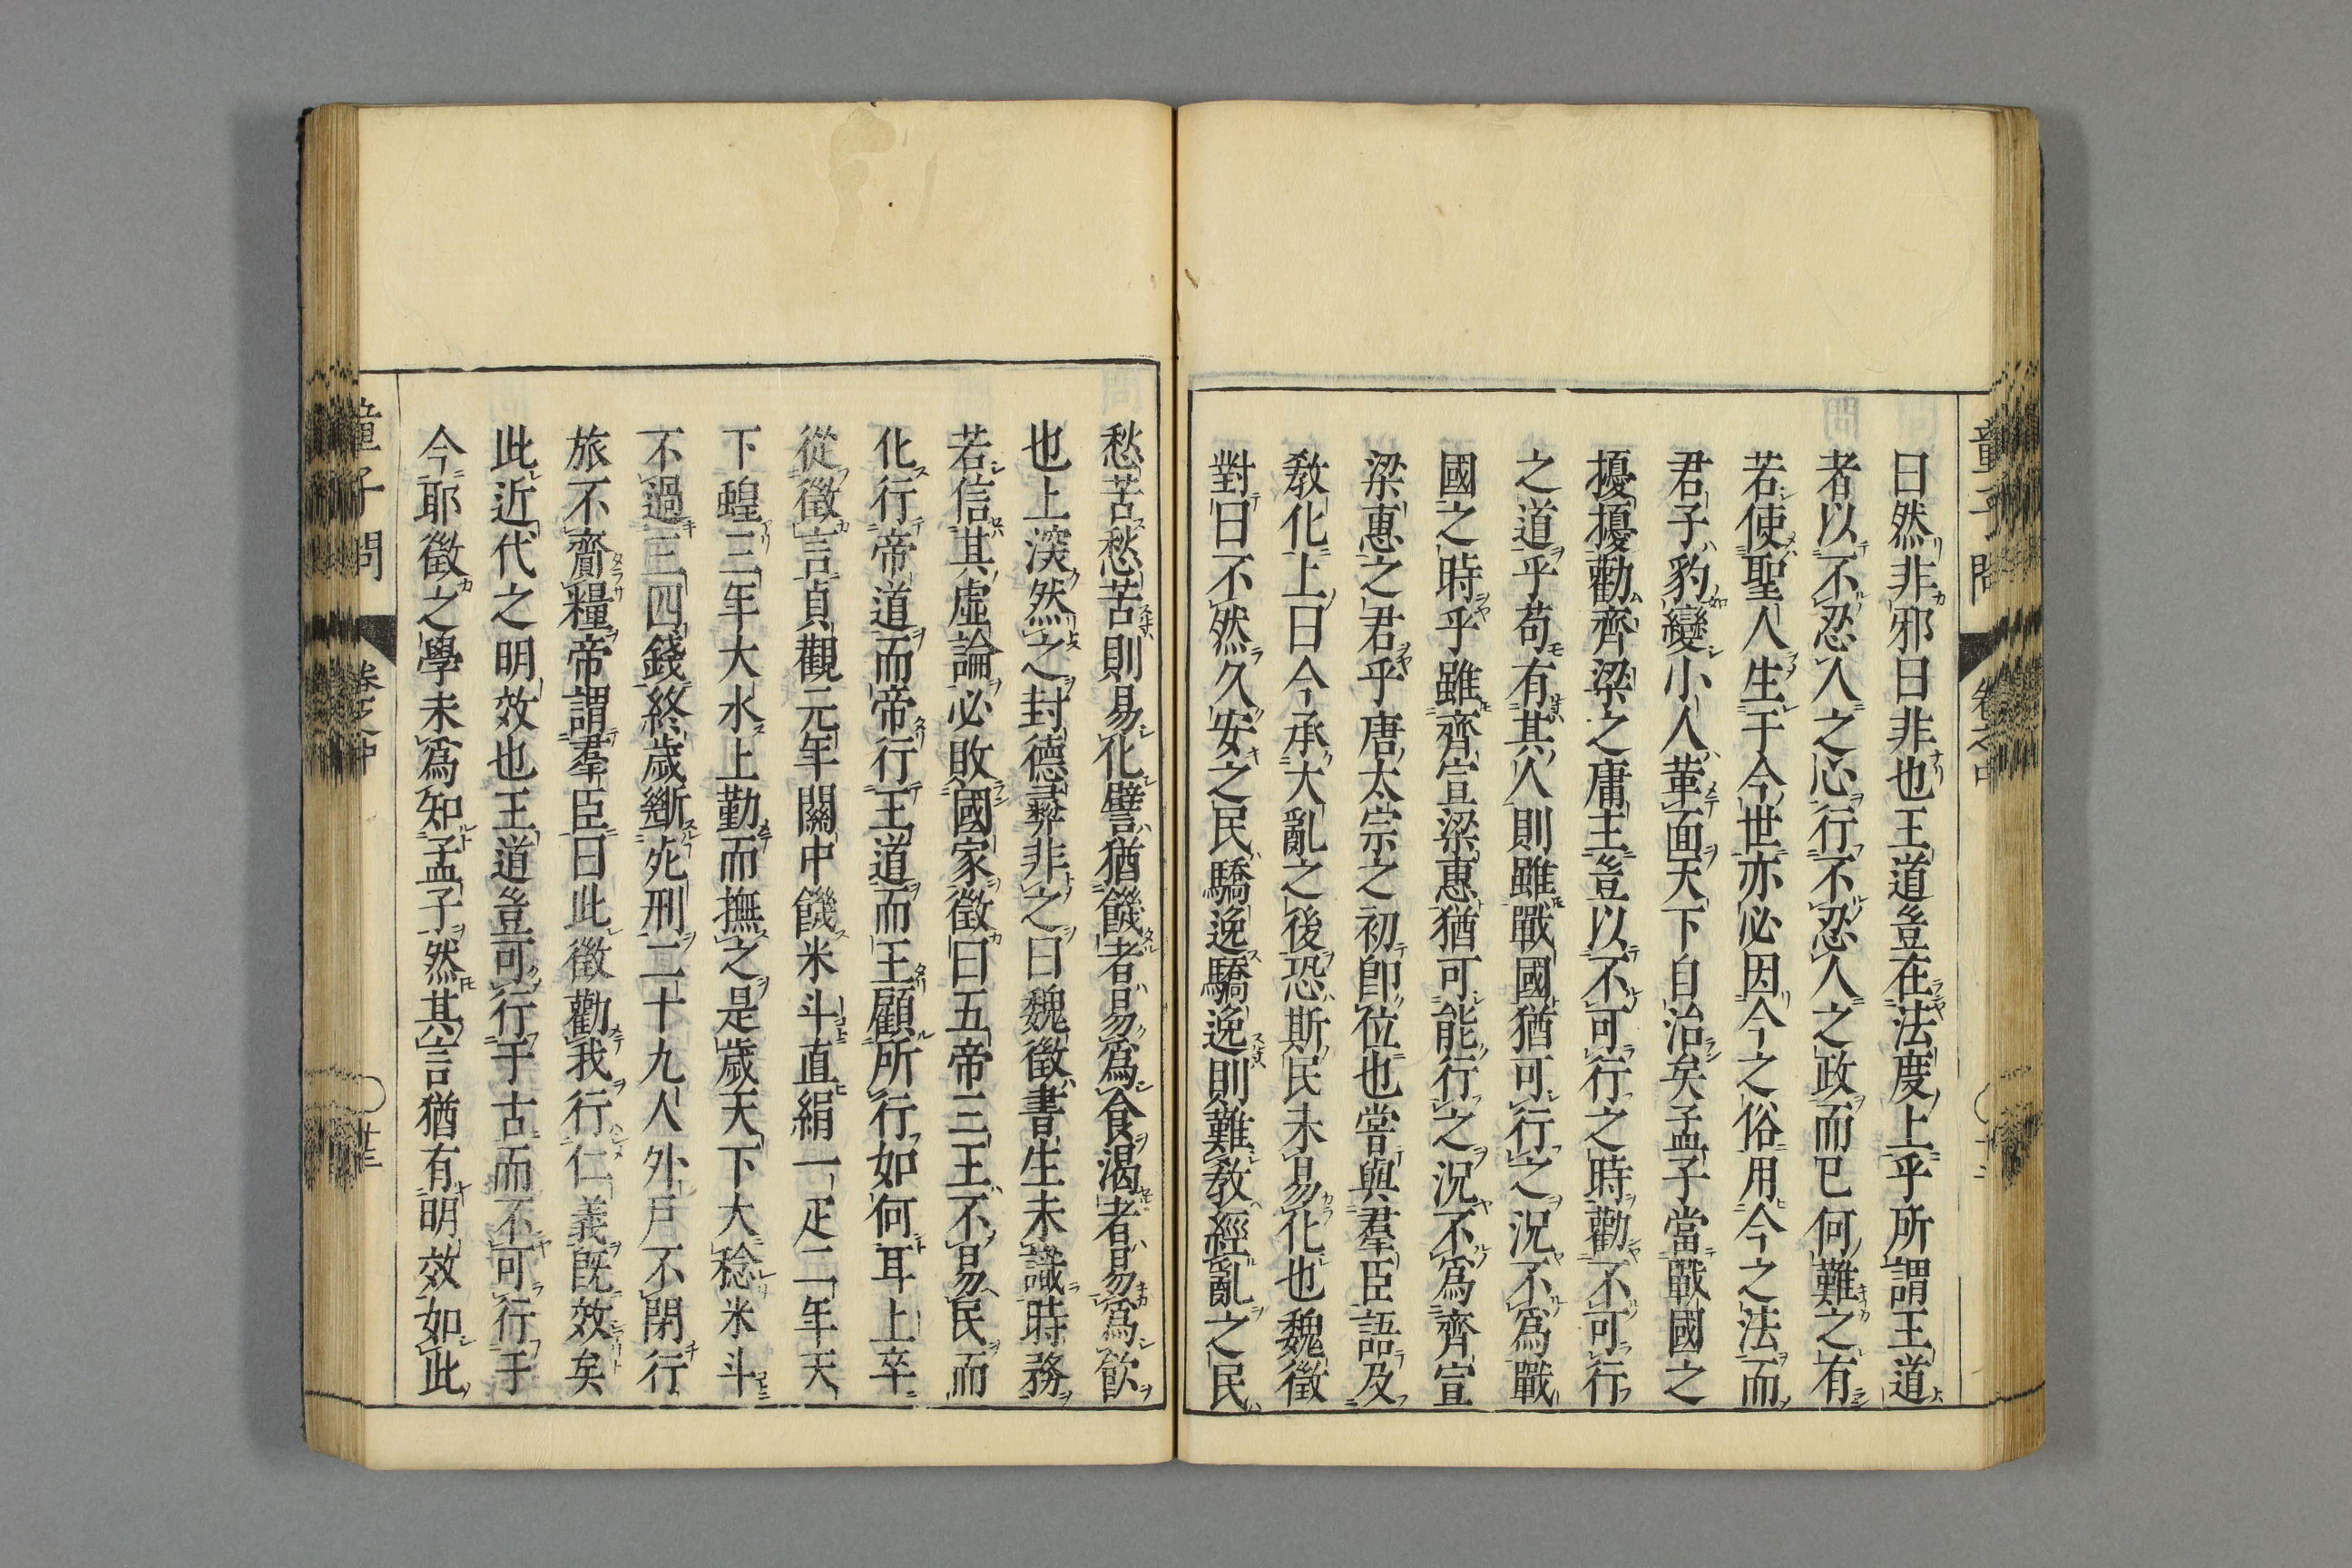 童子問 卷之中
曰然非邪曰非也王道豈在法度上乎所謂王道
者以不忍人之心行不忍人之政而已何難之有
若使聖人生于今世亦必因今之俗用今之法而
君子豹變小人革面天下自治矣孟子當戰國之
擾擾勸齊梁之庸主豈以不可行之時勸不可行
之道乎苟有其人則雖戰國猶可行之況不爲戰
國之時乎雖齊宣梁惠猶可能行之況不爲齊宣
梁惠之君乎唐太宗之初卽位也嘗與羣臣語及
敎化上曰今承大亂之後恐斯民未易化也魏徵
對曰不然久安之民驕逸驕逸則難敎經亂之民
愁苦愁苦則易化譬猶饑者易爲食渴者易爲飮
也上深然之封德彝非之曰魏徵書生未識時務
若信其虛論必敗國家徵曰五帝三王不易民而
化行帝道而帝行王道而王顧所行如何耳上卒
從徵言貞觀元年關中饑米斗直絹一疋二年天
下蝗三年大水上勤而撫之是歲天下大稔米斗
不過三四錢終歲斷死刑二十九人外戶不閉行
旅不齎糧帝謂羣臣曰此徵勸我行仁義旣效矣
此近代之明效也王道豈可行于古而不可行于
今耶徵之學未爲知孟子然其言猶有明效如此
童子問 卷之中